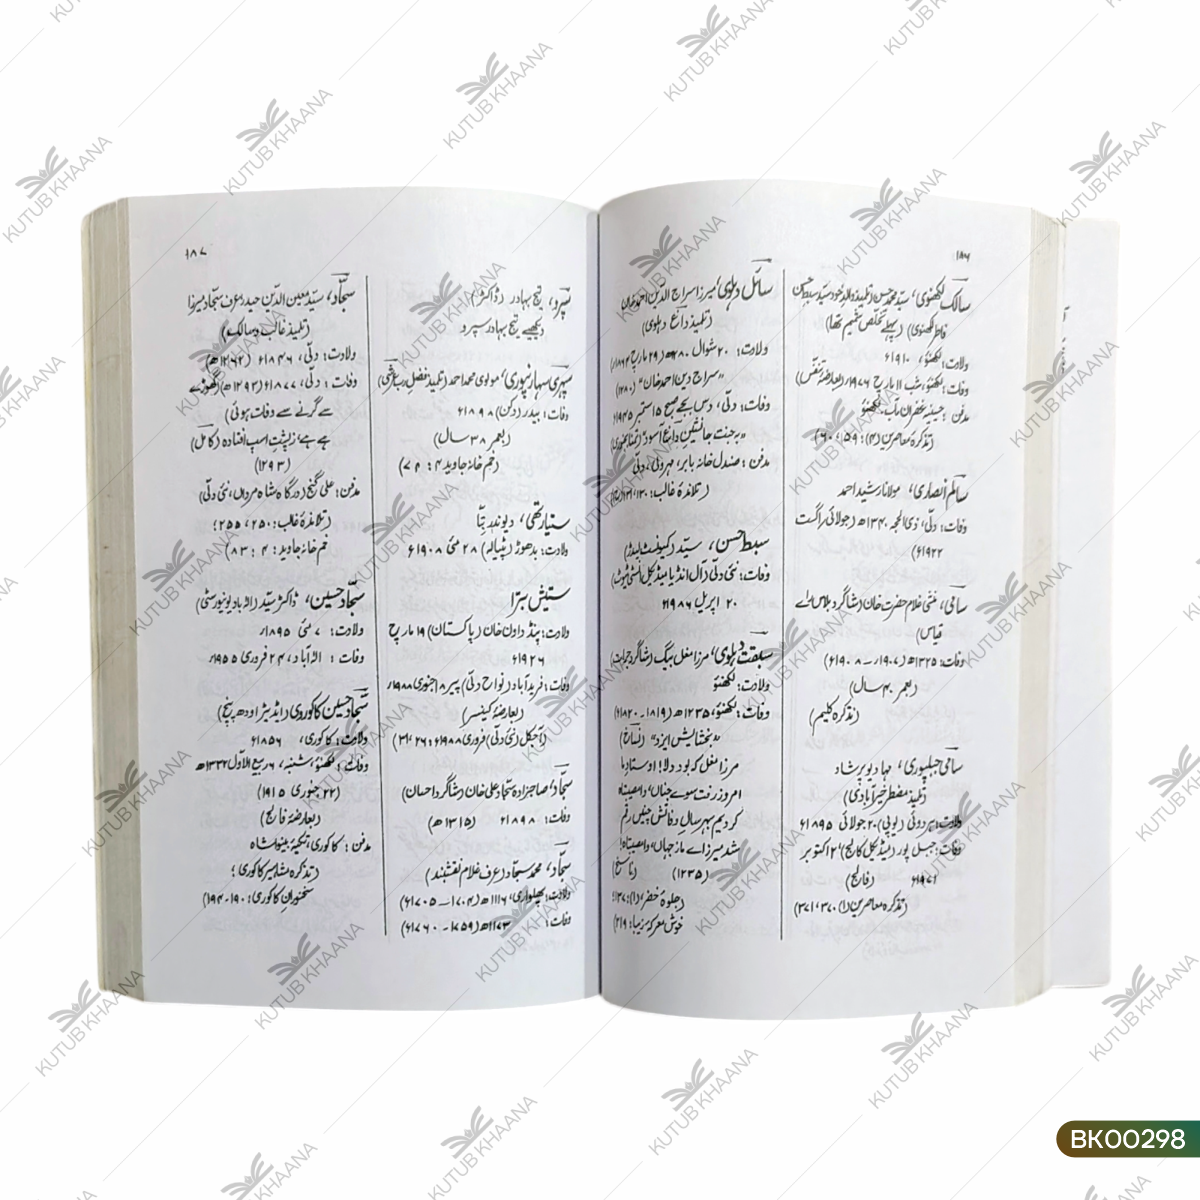 ۱۸۶
سالک لکھنوی، سید محمد حسن (تلمیذ والد خود سید سبط حسن
فاطر لکھنوی) (پہلے تخلص شمیم تھا)
ولادت: لکھنؤ، ۱۹۱۰ء
وفات: لکھنؤ، شب ۱۱ مارچ ۱۹۷۶ء (بعارضۂ تنفس)
مدفن: حسینیہ غفران مآب، لکھنؤ
(تذکرہ معاصرین (۴): ۱۵۹، ۶۰)
سالم انصاری، مولانا رشید احمد
وفات: دلی، ذی الحجہ ۱۳۴۰ھ (جولائی/اگست
۱۹۲۲ء)
سامی، منشی غلام حضرت خان (شاگرد
قیاس)
وفات: ۱۳۲۵ھ (۱۹۰۷ء – ۱۹۰۸ء)
(بعمر ۴۰ سال)
(تذکرہ کلیم)
سامی جبلپوری، مہادیو پرشاد
(تلمیذ مضطر خیرآبادی)
ولادت: ہردوئی (یوپی)، ۲۰ جولائی ۱۸۹۵ء
وفات: جبل پور (میڈیکل کالج)، ۱۲ اکتوبر
۱۹۷۱ء (فالج)
(تذکرہ معاصرین (۱)، ۳۷۰، ۳۷۱)
سائل دہلوی، میرزا سراج الدین احمد خان
(تلمیذ داغ دہلوی)
ولادت: ۲۰ شوال ۱۲۸۰ھ (۲۹ مارچ ۱۸۶۴ء)
"سراج دین احمد خان" (۱۲۸۰)
وفات: دلی، دس بجے صبح ۱۵ ستمبر ۱۹۴۵ء
"بہ جنت جانشین داغ آسود"
مدفن: صندل خانہ بابر، مہرولی، دلی
(تلامذہ غالب: ۱۳۰، ۱۳۱)
سبط حسن، سید (کمیونسٹ لیڈر)
وفات: نئی دلی (آل انڈیا میڈیکل انسٹی ٹیوٹ)
۲۰ اپریل ۱۹۸۶ء
سبقت دہلوی، مرزا مغل بیگ (شاگرد جرأت)
ولادت: لکھنؤ
وفات: لکھنؤ، ۱۲۳۵ھ (۱۸۱۹-۱۸۲۰ء)
"بخشایش ایزد" (نساخ)
مرزا مغل کہ بود دلا! اوستاد ما
امروز رفت سوے جناں، وامصیبتاہ
کردیم بہر سال وفاتش چنیں رقم
شد میرزاے ما ز جہاں، وامصیبتاہ!
(۱۲۳۵) (ناسخ)
(جلوۂ خضر، (۱): ۱۳۷؛
خوش معرکۂ زیبا: ۲۱۹)
۱۸۷
سپرو، تیج بہادر (ڈاکٹر)
دیکھیے تیج بہادر سپرو
سپہری سہارنپوری، مولوی محمد احمد (تلمیذ فضل رب عرشی)
وفات: بیدر (دکن) ۱۸۹۸ء
(بعمر ۳۸ سال)
(خم خانہ جاوید ۴: ۷۴)
ستیارتھی، دیوندرا
ولادت: بدھوڑ (پٹیالہ) ۲۸ مئی ۱۹۰۸ء
ستیش بترا
ولادت: پنڈ دادن خان (پاکستان) ۱۹ مارچ
۱۹۲۶ء
وفات: فریدآباد (نواح دلی) پیر ۱۸ جنوری ۱۹۸۸ء
(بعارضۂ کینسر)
(آجکل (نئی دلی) فروری ۱۹۸۸ء: ۲۶؛ ۳۱)
سجاد، صاحبزادہ سجاد علی خان (شاگرد احسان)
وفات: ۱۸۹۸ء (۱۳۱۵ھ)
سجاد، محمد سجاد (عرف غلام نقشبند)
ولادت: پھلواری، ۱۱۱۶ھ (۱۷۰۴ء – ۱۷۰۵ء)
وفات: ۱۱۷۳ھ (۱۷۵۹ – ۱۷۶۰ء)
سجاد، سید معین الدین حیدر عرف سجاد میرزا
(تلمیذ غالب و سالک)
ولادت: دلی، ۱۸۴۶ء (۱۲۶۲ھ)
وفات: دلی، ۱۸۷۷ء (۱۲۹۳ھ) (گھوڑے
سے گرنے سے وفات ہوئی)
ہے ہے، ز پشت اسپ افتادہ (کامل)
(۱۲۹۳)
مدفن: علی گنج (درگاہ شاہ مرداں، نئی دلی)
(تلامذہ غالب: ۲۵۰، ۲۵۵؛
خم خانہ جاوید: ۴: ۸۳)
سجاد حسین، ڈاکٹر سید (الہ آباد یونیورسٹی)
ولادت: ۷ مئی ۱۸۹۵ء
وفات: الہ آباد، ۲۴ فروری ۱۹۵۵ء
سجاد حسین کاکوروی (ایڈیٹر اودھ پنچ)
ولادت: کاکوری، ۱۸۵۶ء
وفات: لکھنؤ، شنبہ، ۶ ربیع الاول ۱۳۳۳ھ
(۲۲ جنوری ۱۹۱۵ء)
(بعارضۂ فالج)
مدفن: کاکوری، تکیہ بینوا شاہ
(تذکرہ مشاہیر کاکوری؛
سخنوران کاکوری: ۱۹۰-۱۹۴)
BK00298
KUTUB KHAANA